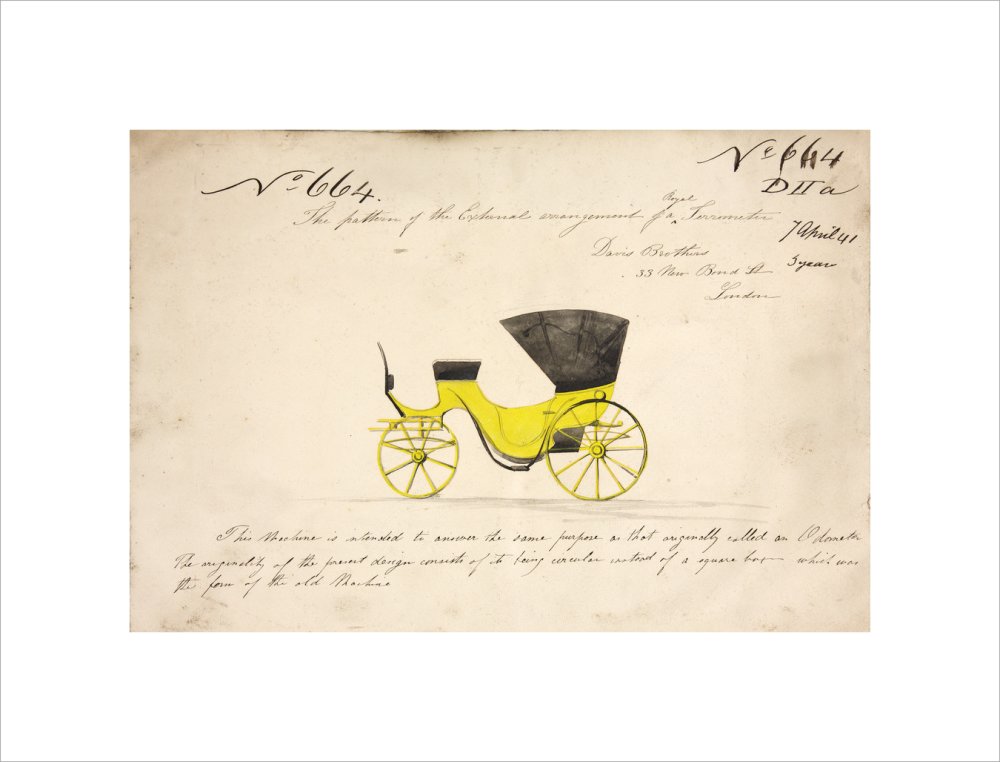 No 664.
No 664
D II a
The pattern of the External arrangement of a Royal Terrometer
7 April 41
Davis Brothers
3 year
33 New Bond St
London
This Machine is intended to answer the same purpose as that originally called an Odometer
The originality of the present design consists of its being circular instead of a square box which was
the form of the old Machine